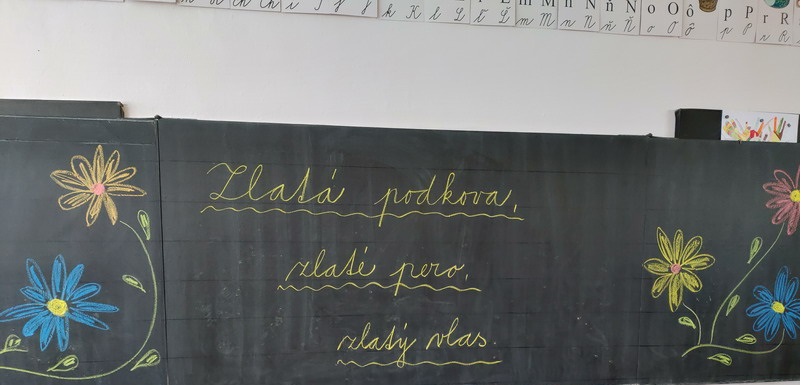 k K l L ĺ Ľ m M n N ň Ň o O ô p P r R
Zlatá podkova,
zlaté pero,
zlatý vlas.